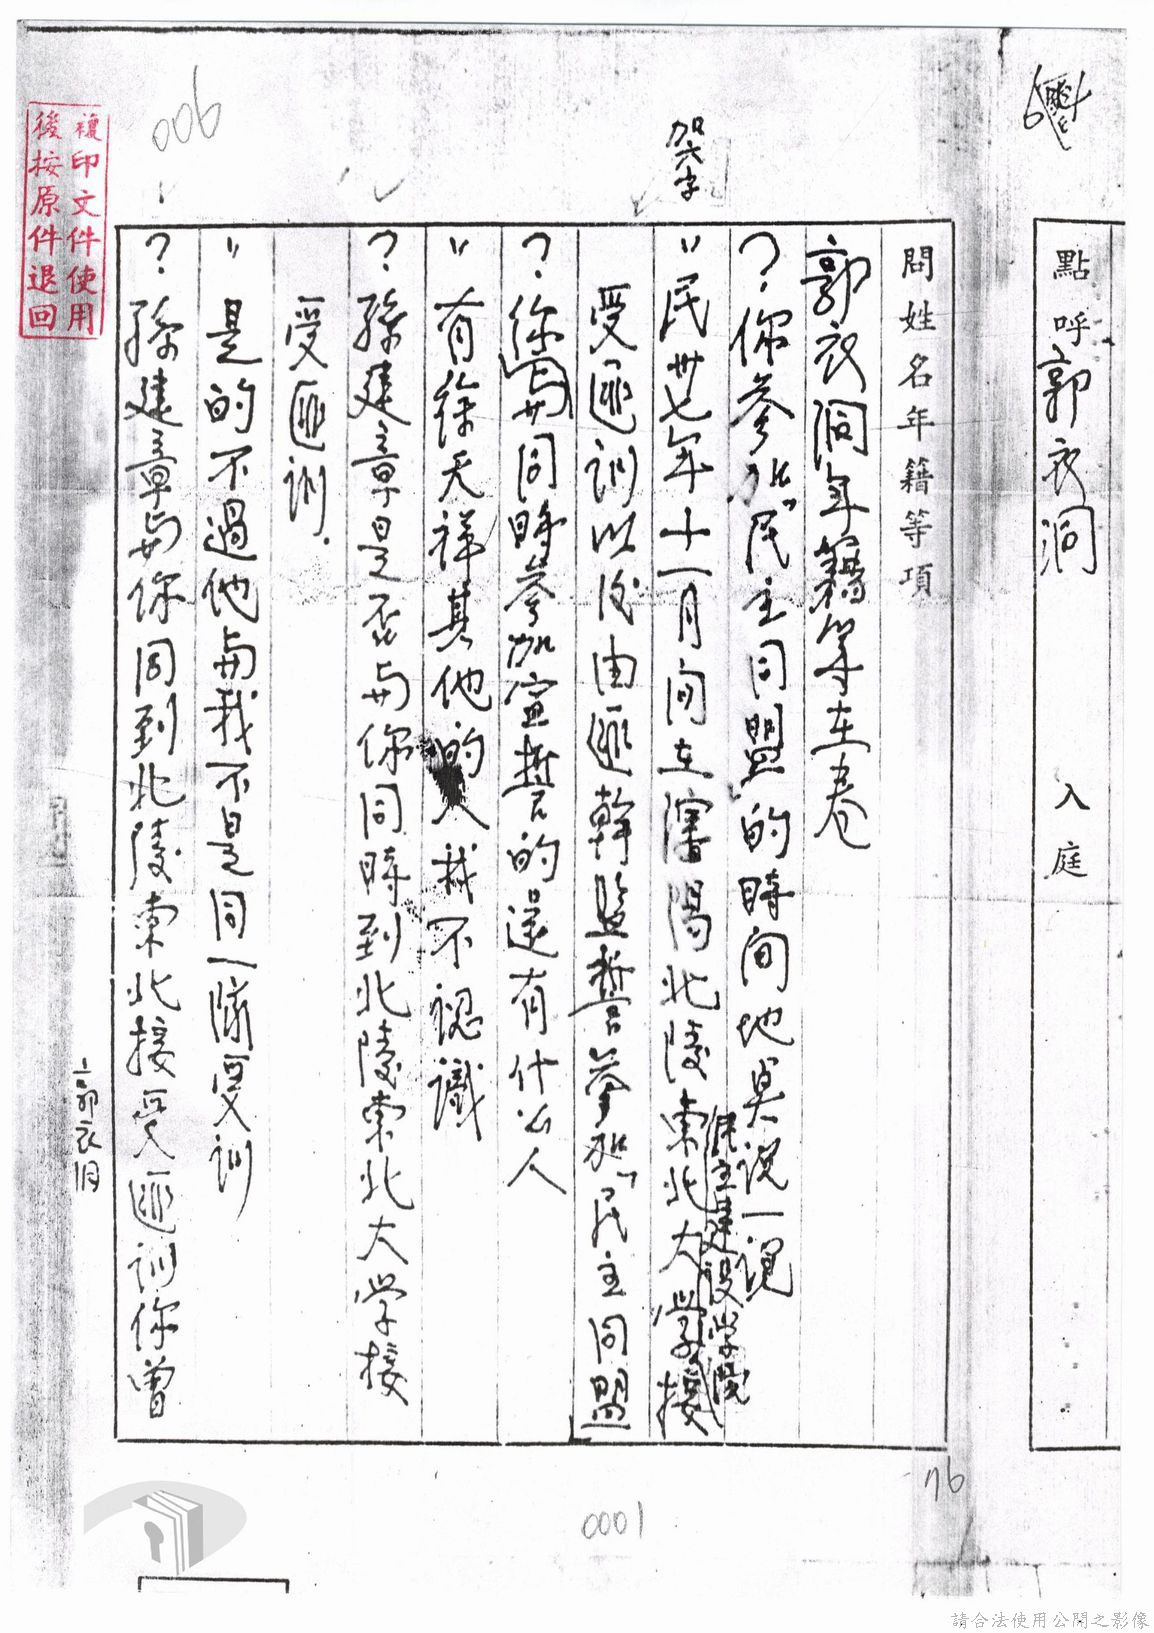 點呼郭衣洞 入庭
問姓名年籍等項
郭衣洞年籍等在卷
？你參加「民主同盟的時间地奌說一說
民主建設学院
加六字
〃民卅七年十一月间在瀋陽北陵東北大学接
受匪訓以後由匪幹監誓參加「民主同盟
？你与同時參加宣誓的還有什么人
〃有徐天祥其他的人我不認識
？孫建章是否与你同時到北陵東北大学接
受匪訓.
〃是的不過他与我不是同一隊受训
？孫建章与你同到北陵東北接受匪训你曾
郭衣洞
複印文件使用
後按原件退回
006
76
0001
請合法使用公開之影像